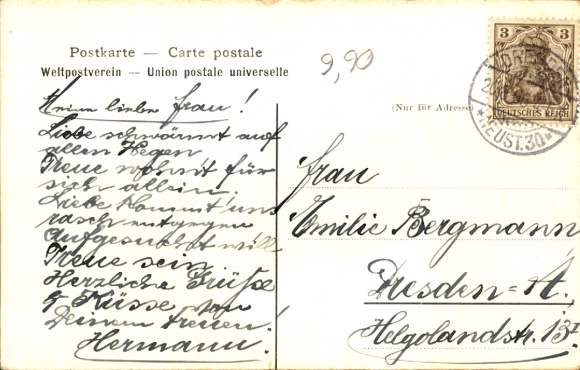 Postkarte — Carte postale
Weltpostverein — Union postale universelle
9,90
3
DEUTSCHES REICH
DRESDEN
*NEUST.30*
(Nur für Adresse)
Meine liebe Frau!
Liebe schwärmt auf
allen Wegen
Treue wohnt für
sich allein.
Liebe kommt uns
rasch entgegen
Aufgesucht will
Treue sein.
Herzliche Grüße
& Küsse von
Deinem treuen
Hermann!
Frau
Emilie Bergmann
Dresden-A.
Helgolandstr. 13